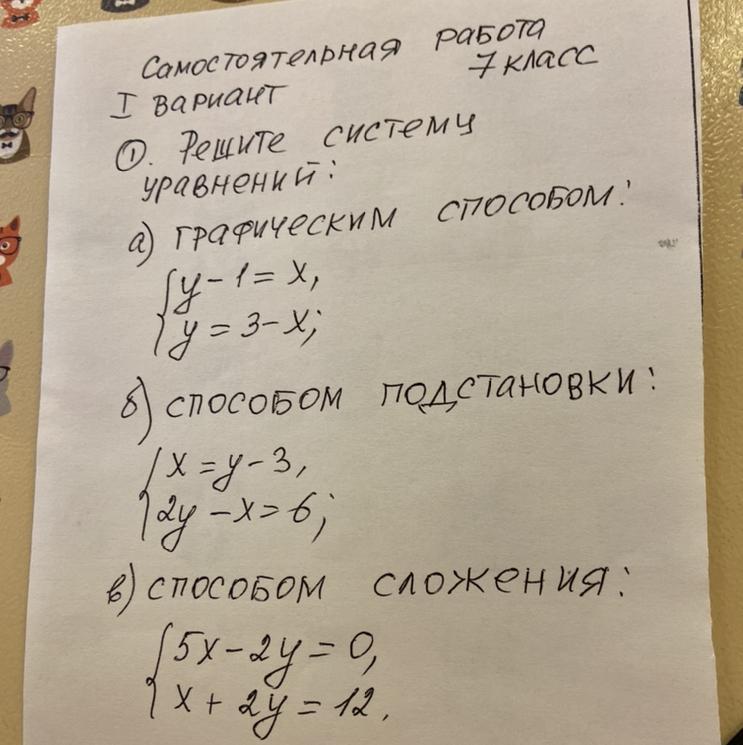 Самостоятельная работа
7 класс
I вариант
①. Решите систему
уравнений:
а) графическим способом:
{y - 1 = x,
y = 3 - x;
б) способом подстановки:
{x = y - 3,
2y - x = 6;
в) способом сложения:
{5x - 2y = 0,
x + 2y = 12.